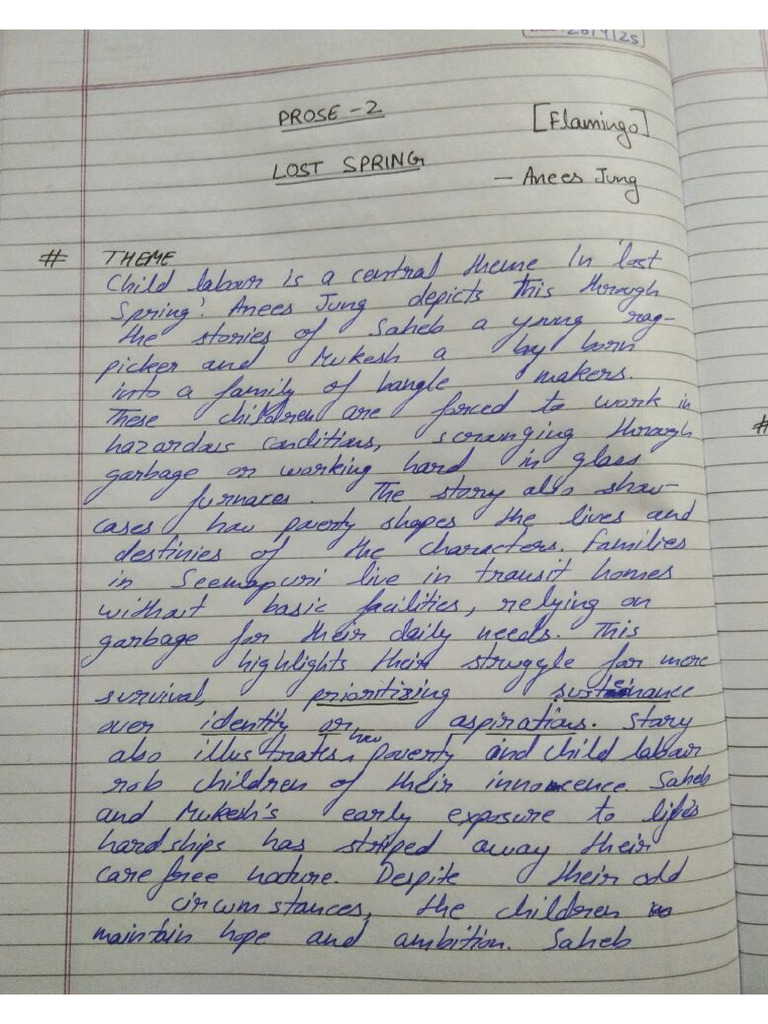 28/4/25
PROSE - 2
[Flamingo]
LOST SPRING
- Anees Jung
# THEME
Child labour is a central theme In 'lost
Spring'. Anees Jung depicts this through
the stories of Saheb a young rag-
picker and Mukesh a boy born
into a family of bangle makers.
These children are forced to work in
hazardous conditions, scrounging through
garbage or working hard in glass
furnaces. The story also show-
cases how poverty shapes the lives and
destinies of the characters. Families
in Seemapuri live in transit homes
without basic facilities, relying on
garbage for their daily needs. This
highlights their struggle for mere
survival, prioritizing sustenance
over identity or aspirations. Story
also illustrates how poverty and child labour
rob children of their innocence. Saheb
and Mukesh's early exposure to life's
hardships has striped away their
care free nature. Despite their odd
circumstances, the children
maintain hope and ambition. Saheb
#